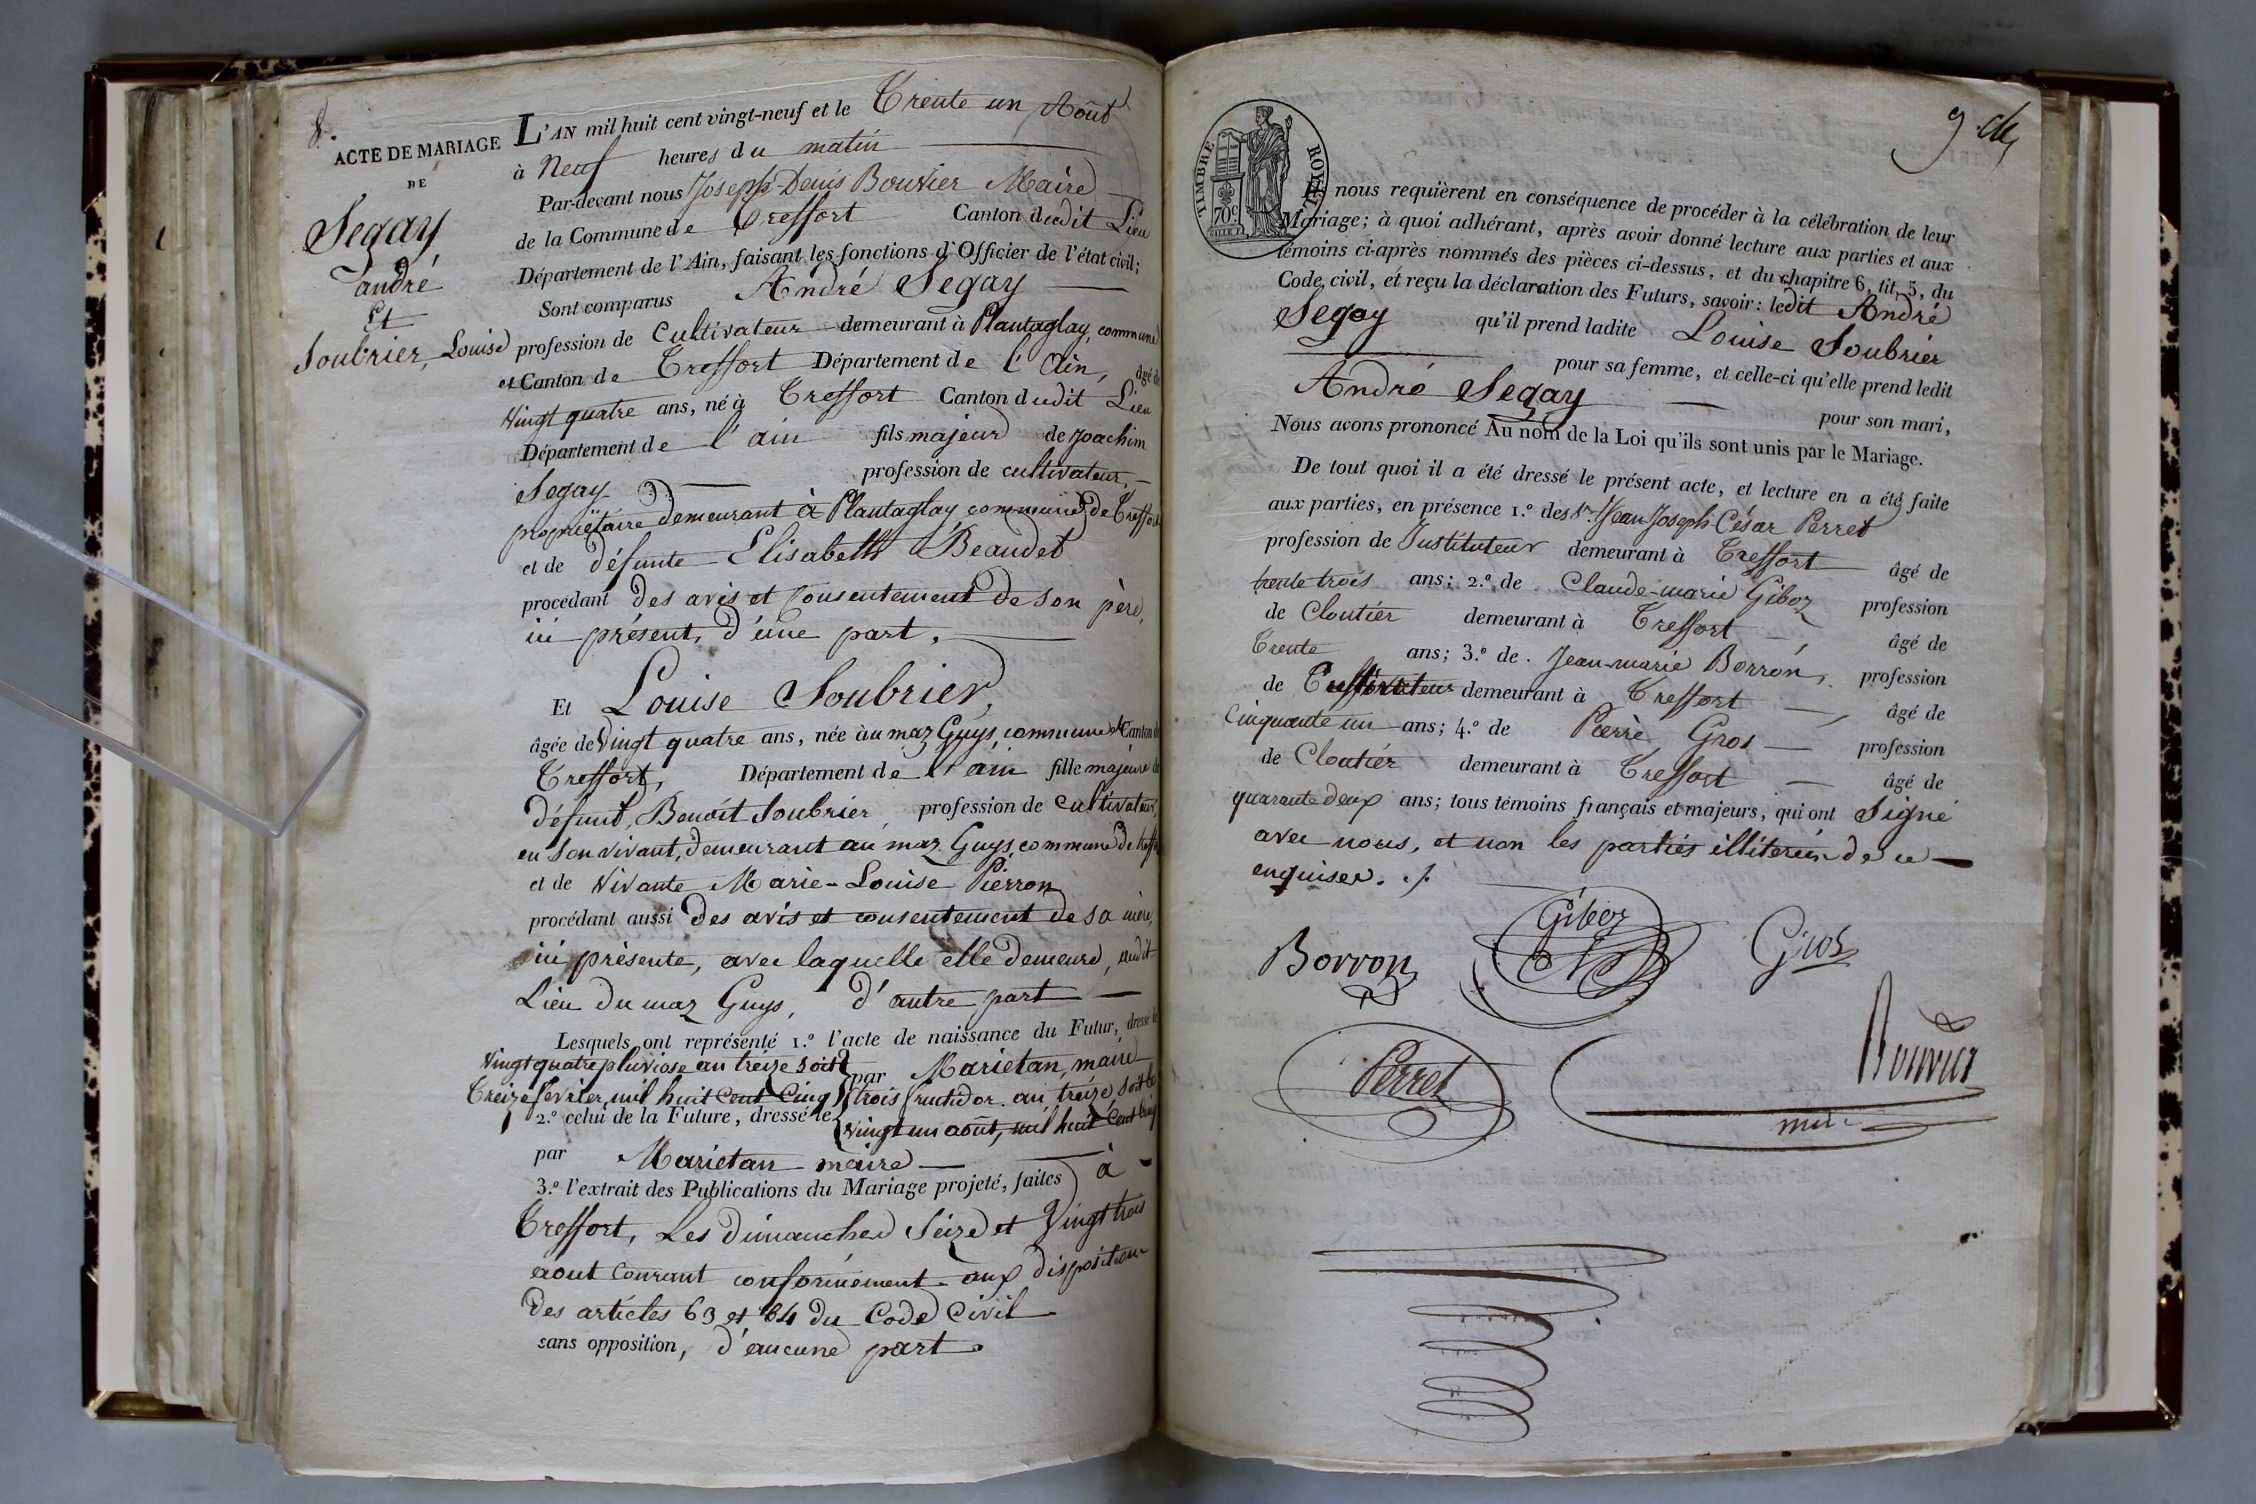 8.
ACTE DE MARIAGE
DE
Segay
andré
Et
Soubrier, Louise
L'AN mil huit cent vingt-neuf et le Trente un Août
à Neuf heures du matin
Par-devant nous Joseph-Denis Bouvier Maire
de la Commune de Treffort Canton dudit Lieu
Département de l'Ain, faisant les fonctions d'Officier de l'état civil;
Sont comparus André Segay
profession de Cultivateur demeurant à Plantaglay, commune
et Canton de Treffort Département de l'Ain, âgé de
Vingt quatre ans, né à Treffort Canton dudit Lieu
Département de l'ain fils majeur de Joachim
Segay profession de cultivateur,
propriétaire demeurant à Plantaglay commune de Treffort
et de défunte Elisabeth Beaudet
procédant des avis et consentement de son père,
ici présent, d'une part,
Et Louise Soubrier,
âgée de Vingt quatre ans, née au maz Guys, commune et Canton de
Treffort, Département de l'ain fille majeure de
défunt, Benoît Soubrier, profession de cultivateur,
en son vivant, demeurant au maz Guys, commune de treffort
et de vivante Marie-Louise Pierron
procédant aussi des avis et consentement de sa mère,
ici présente, avec laquelle elle demeure, audit
Lieu du maz Guys, d'autre part
Lesquels ont représenté 1.º l'acte de naissance du Futur, dressé le
Vingt quatre pluviose an treize soit
Treize février, mil huit cent cinq
par Marietan, maire
2.º celui de la Future, dressé le
trois fructidor an treize, soit le
vingt un août, mil huit cent cinq
par Marietan maire
3.º l'extrait des Publications du Mariage projeté, faites à
Treffort, Les dimanches Seize et Vingt trois
aout courant conformément aux disposition
des articles 63 et 64 du Code Civil
sans opposition, d'aucune part.
TIMBRE ROYAL
70 c.
nous requièrent en conséquence de procéder à la célébration de leur
Mariage; à quoi adhérant, après avoir donné lecture aux parties et aux
témoins ci-après nommés des pièces ci-dessus, et du chapitre 6, tit. 5, du
Code civil, et reçu la déclaration des Futurs, savoir: ledit André
Segay qu'il prend ladite Louise Soubrier
pour sa femme, et celle-ci qu'elle prend ledit
André Segay pour son mari,
Nous avons prononcé Au nom de la Loi qu'ils sont unis par le Mariage.
De tout quoi il a été dressé le présent acte, et lecture en a été faite
aux parties, en présence 1.º des Sr. Jean Joseph-César Perret
profession de Instituteur demeurant à Treffort âgé de
trente trois ans; 2.º de Claude-marie Giboz profession
de Cloutier demeurant à Treffort âgé de
Trente ans; 3.º de Jean-marie Borron, profession
de Cultivateur demeurant à Treffort âgé de
Cinquante un ans; 4.º de Pierre Gros profession
de Cloutier demeurant à Treffort âgé de
quarante deux ans; tous témoins français et majeurs, qui ont Signé
avec nous, et non les parties illiterées de ce
enquises. ./.
Giboz
Borron
Gros
Bouvier
Perret